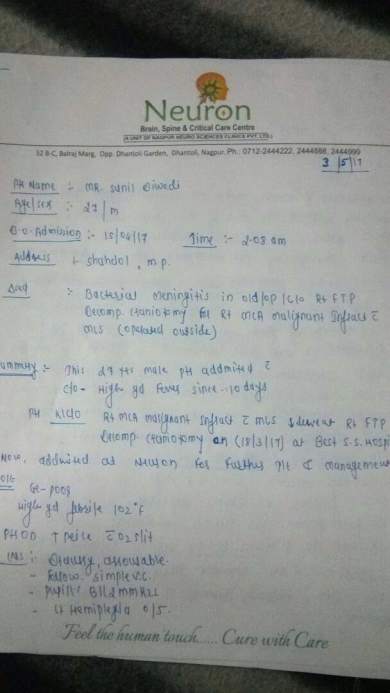 Neuron
Brain, Spine & Critical Care Centre
(A UNIT OF NAGPUR NEURO SCIENCES CLINICS PVT. LTD.)
32 B-C, Balraj Marg, Opp. Dhantoli Garden, Dhantoli, Nagpur. Ph.: 0712-2444222, 2444888, 2444999
3/5/17
Pt Name :- MR. Sunil Diwedi
Age/sex :- 27/m
D.O. Admission :- 15/04/17 Time :- 2.03 am
Address :- Shahdol, m.p.
:- Bacterial meningitis in old/op/c/o Rt FTP
Decomp. craniotomy for Rt MCA malignant Infract c̄
MLS (operated outside)
ummery :- This 27 yrs male pt addmited c̄
c/o - High gd fever since - 10 days
Pt K/C/O Rt MCA malignant Infract c̄ MLS Rt FTP
Decomp craniotomy on (18/3/17) at Best S.S. Hospi
Now, addmited at Neuron for Further management
O/E
GC-poor
High gd febrile 102°F
T peice c̄ O2 5lit
:- Drowsy, arousable.
- Follow simple v.c.
- Pupils B/L 2mm
- Lt Hemiplegia 0/5.
Feel the human touch...... Cure with Care